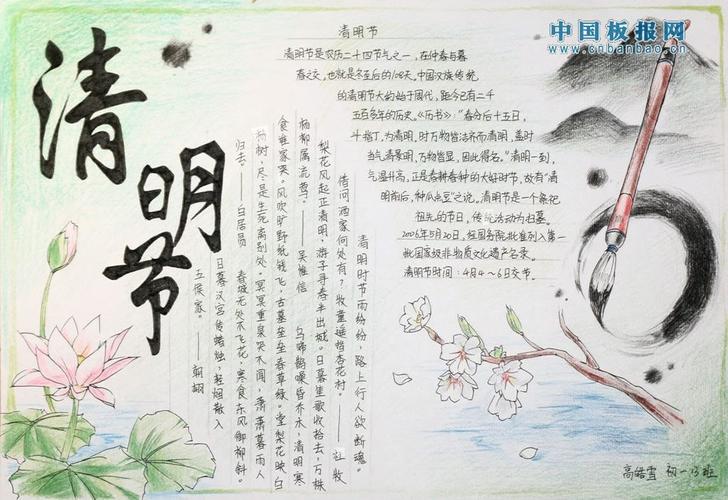 清明节
清明节
清明节是农历二十四节气之一，在仲春与暮
春之交，也就是冬至后的108天。中国汉族传统
的清明节大约始于周代，距今已有二千
五百多年的历史。《历书》：“春分后十五日，
斗指丁，为清明，时万物皆洁齐而清明，盖时
当气清景明，万物皆显，因此得名。”清明一到，
气温升高，正是春耕春种的大好时节，故有“清
明前后，种瓜点豆”之说。清明节是一个祭祀
祖先的节日，传统活动为扫墓。
2006年5月20日，经国务院批准列入第一
批国家级非物质文化遗产名录。
清明节时间：4月4～6日交节。
清明时节雨纷纷，路上行人欲断魂。
借问酒家何处有？牧童遥指杏花村。——杜牧
梨花风起正清明，游子寻春半出城。日暮笙歌收拾去，万株
杨柳属流莺。——吴惟信 乌啼鹊噪昏乔木，清明寒
食谁家哭。风吹旷野纸钱飞，古墓垒垒春草绿。堂梨花映白
杨树，尽是生死离别处。冥冥重泉哭不闻，萧萧暮雨人
归去。——白居易 春城无处不飞花，寒食东风御柳斜。
日暮汉宫传蜡烛，轻烟散入
五侯家。——翃
高皓雪 初一13班
中国板报网
www.cnbanbao.cn